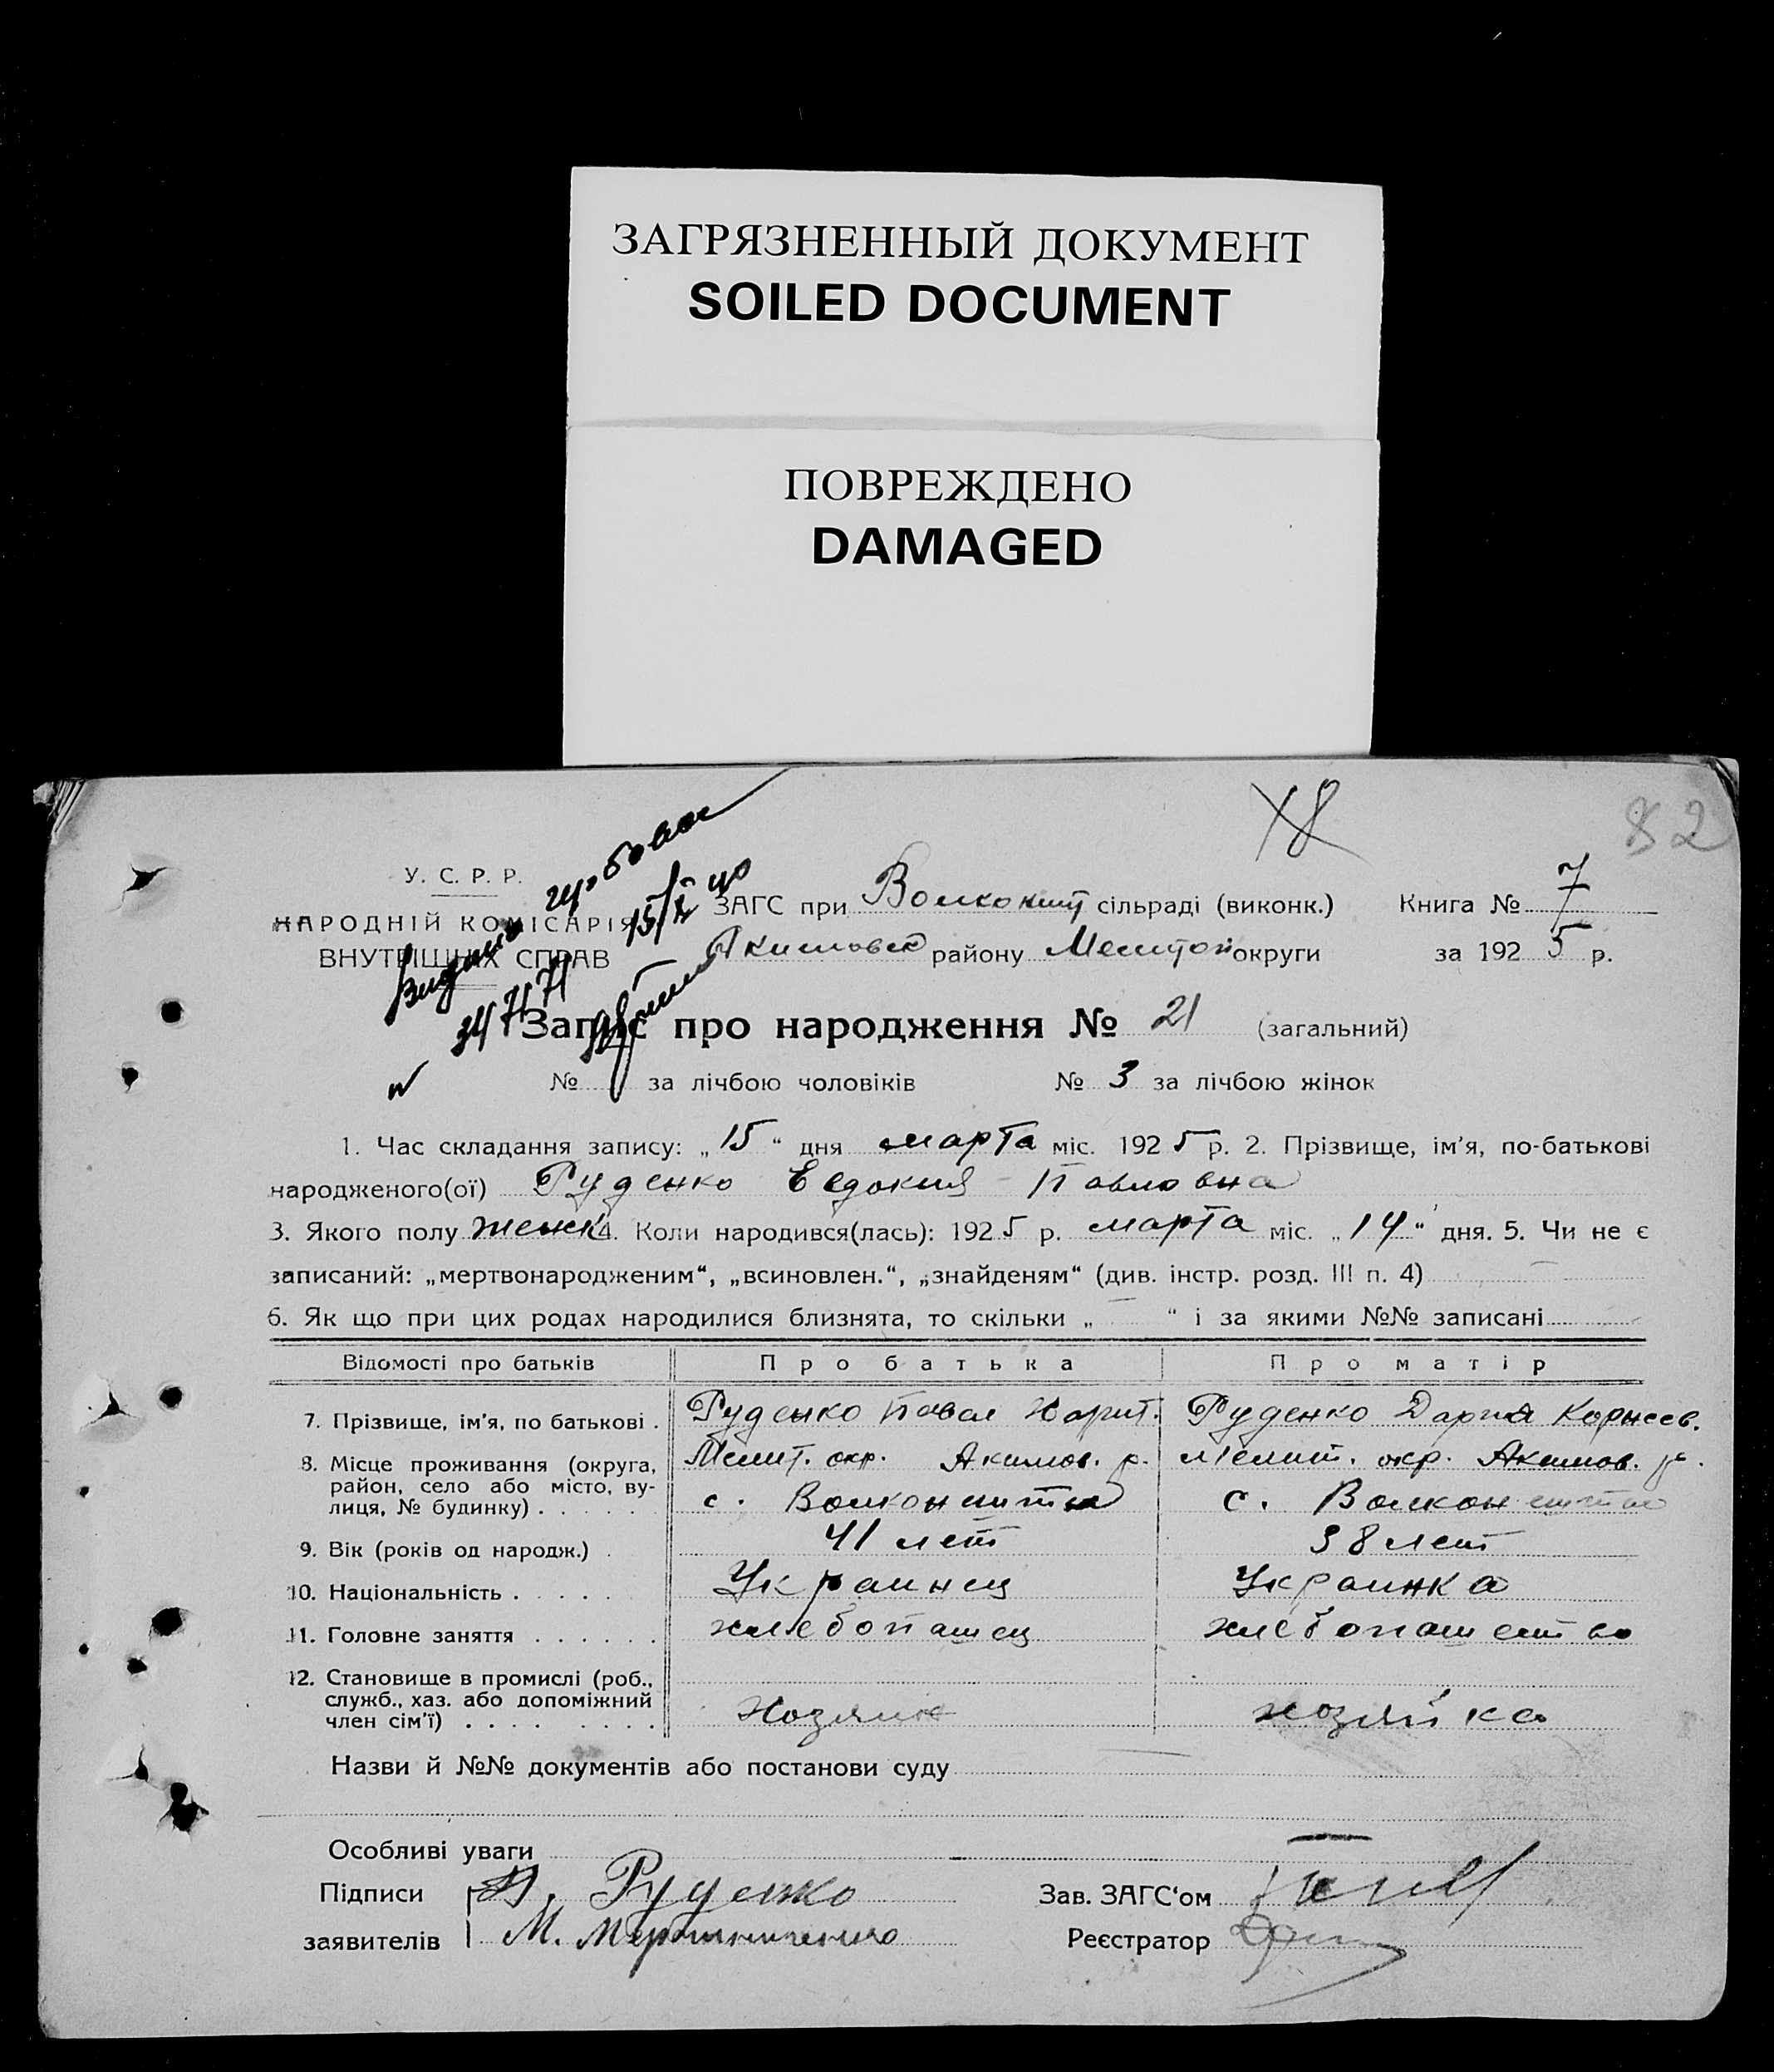 ЗАГРЯЗНЕННЫЙ ДОКУМЕНТ
SOILED DOCUMENT
ПОВРЕЖДЕНО
DAMAGED
82
У. С. Р. Р.
НАРОДНІЙ КОМІСАРІЯ
ВНУТРІШНІХ СПРАВ
ЗАГС при сільраді (виконк.) Книга № 7
Акимовск району Мелитоп округи за 1925 р.
Запис про народження № 21 (загальний)
№ за лічбою чоловіків № 3 за лічбою жінок
1. Час складання запису: „15“ дня марта міс. 1925 р. 2. Прізвище, ім'я, по-батькові
народженого(ої) Руденко Евдокия Павловна
3. Якого полу женск 4. Коли народився(лась): 1925 р. марта міс. „14“ дня. 5. Чи не є
записаний: „мертвонародженим“, „всиновлен.“, „знайденям“ (див. інстр. розд. III п. 4)
6. Як що при цих родах народилися близнята, то скільки „ “ і за якими №№ записані
Відомості про батьків Про батька Про матір
7. Прізвище, ім'я, по батькові . Руденко Павел Харит. Руденко Дария Корнеев.
8. Місце проживання (округа, Мелит. окр. Акимов. р. Мелит. окр. Акимов. р.
район, село або місто, ву-
лиця, № будинку) . . . . . с. Волконешты с. Волконешты
9. Вік (років од народж.) . 41 лет 38 лет
10. Національність . . . . . Украинец Украинка
11. Головне заняття . . . . . . хлебопашец хлебопашество
12. Становище в промислі (роб.,
служб., хаз. або допоміжний
член сім'ї) . . . . . . . . Хозяин хозяйка
Назви й №№ документів або постанови суду
Особливі уваги
Підписи Руденко Зав. ЗАГС'ом
заявителів М. Реєстратор